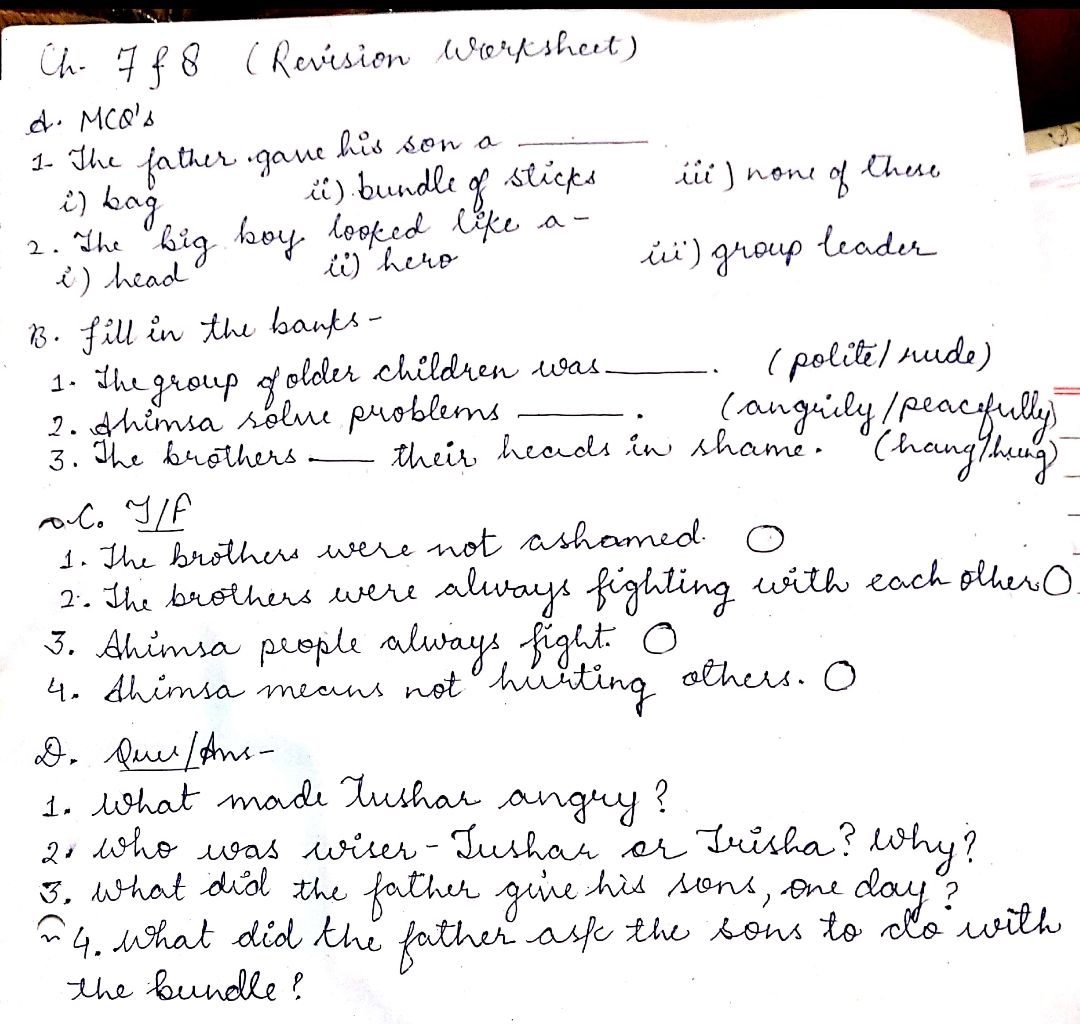 Ch. 7 & 8 (Revision Worksheet)
A. MCQ's
1. The father gave his son a ______
i) bag ii) bundle of sticks iii) none of these
2. The big boy looked like a -
i) head ii) hero iii) group leader
B. fill in the banks -
1. The group of older children was ______. (polite/rude)
2. Ahimsa solve problems ______. (angrily/peacefully)
3. The brothers ____ their heads in shame. (hang/hung)
C. T/F
1. The brothers were not ashamed.
2. The brothers were always fighting with each other
3. Ahimsa people always fight.
4. Ahimsa means not hurting others.
D. Ques/Ans -
1. What made Tushar angry?
2. Who was wiser - Tushar or Trisha? Why?
3. What did the father give his sons, one day?
4. What did the father ask the sons to do with
the bundle?